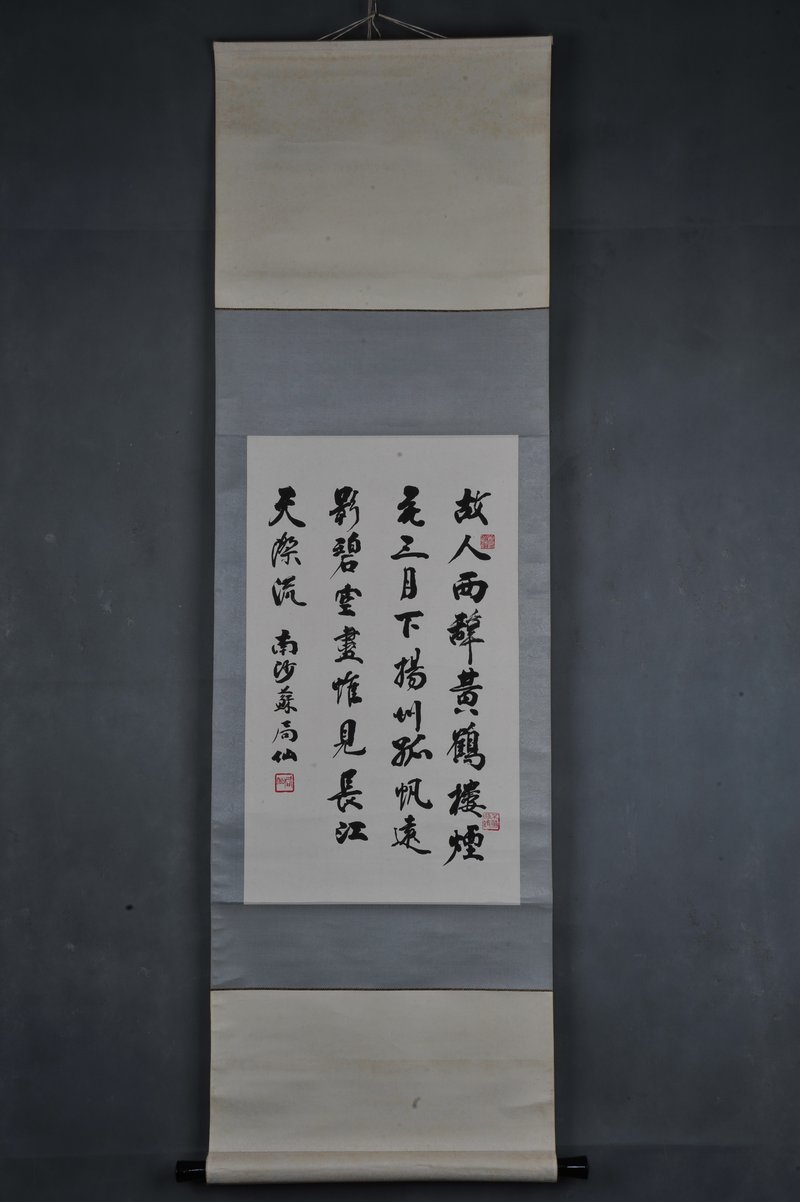 故人西辭黃鶴樓煙
花三月下揚州孤帆遠
影碧空盡惟見長江
天際流
南沙蘇局仙